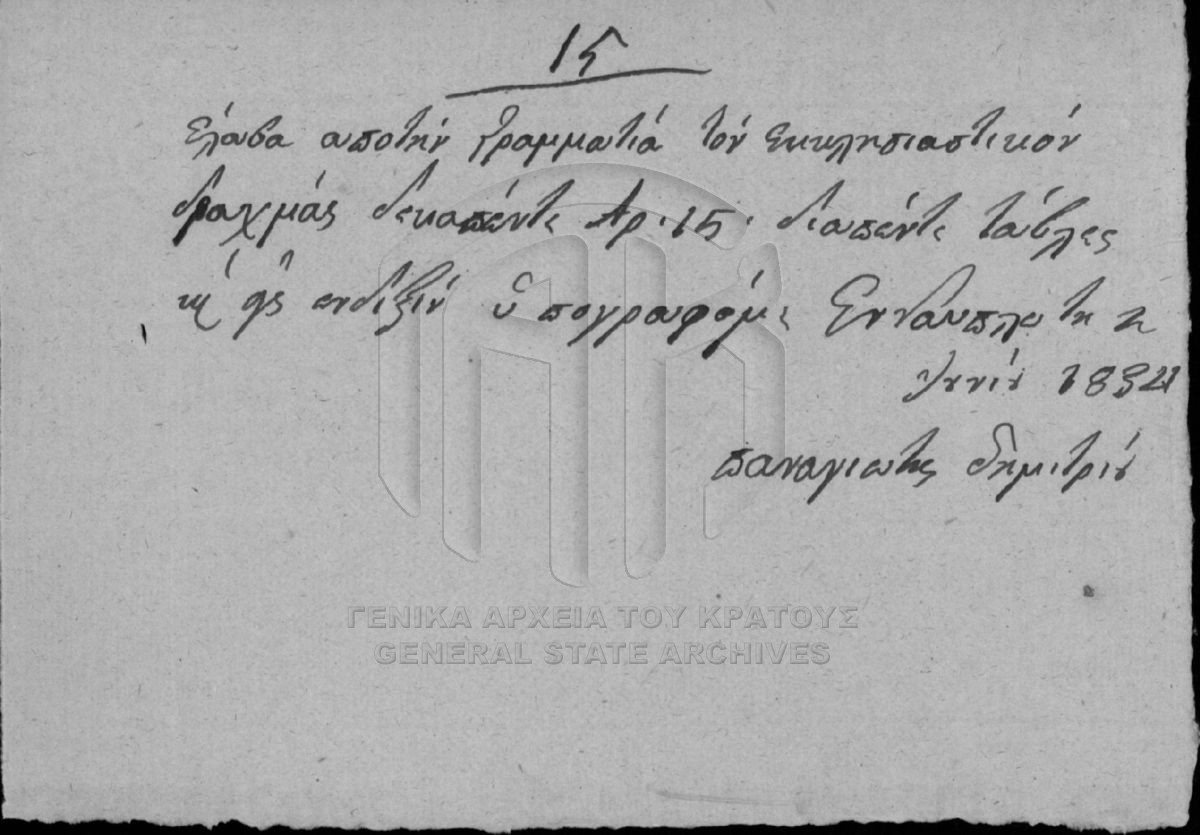 15
Ελαβα αποτήν γραμματιά τόν εκκλησιαστικόν
δραχμάς δεκαπέντε δρ: 15: διαπέντε τάβλες
κ͵ ής ενδιξιν ὑπογραφόμε Ενναυπλιο τη 2
Ιουνίου 1834
παναγιωτης δημιτρίου
ΓΕΝΙΚΑ ΑΡΧΕΙΑ ΤΟΥ ΚΡΑΤΟΥΣ
GENERAL STATE ARCHIVES